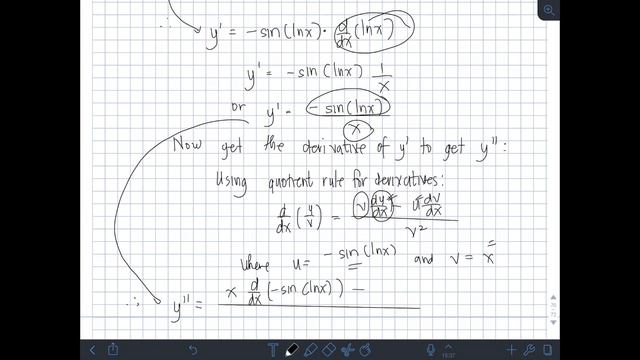 ∴ y' = - sin (lnx) · d/dx (lnx)
y' = - sin (lnx) 1/x
or y' = - sin (lnx) / x
Now get the derivative of y' to get y'':
Using quotient rule for derivatives:
d/dx (u/v) = (v du/dx - u dv/dx) / v²
where u = - sin (lnx) and v = x
∴ y'' = x d/dx (- sin (lnx)) -